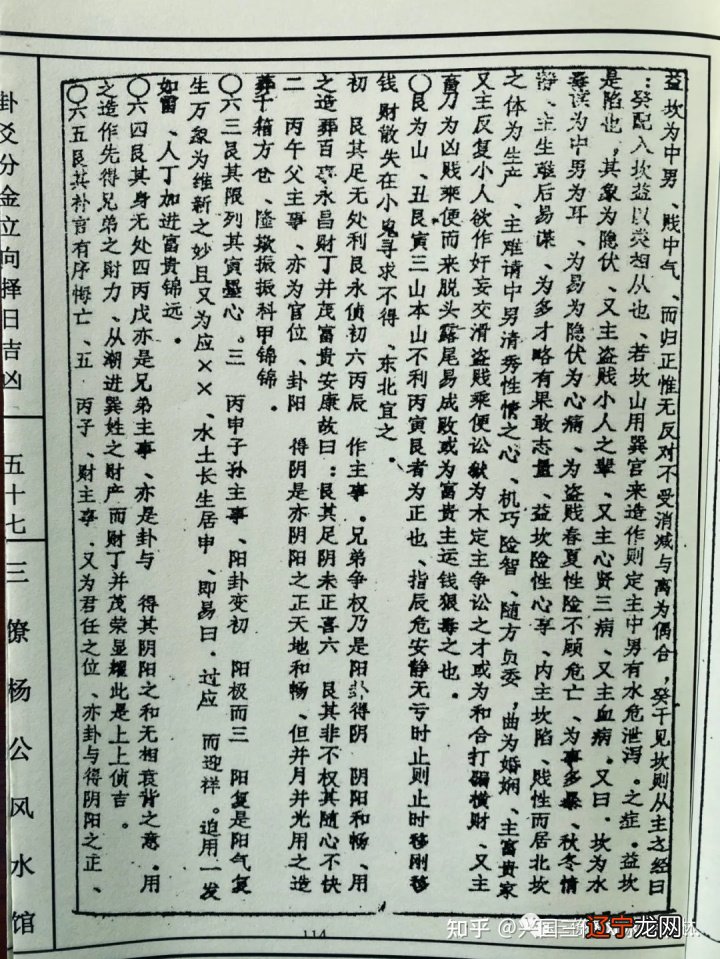 益坎为中男、贱中气、而归正惟无反对不受消减与离为偶合，癸干见坎则从主之经曰
：癸配入坎益以类相从也、若坎山用巽宫来造作则定主中男有水危泄泻。之症。益坎
是陷也，其象为隐伏、又主盗贱小人之辈、又主心贤三病、又主血病。又曰．坎为水
为中男为耳、为易为隐伏为心痛、为盗贱春夏性险不顾危亡、为事多暴、秋冬情
静、主生难后易谋、为多才略有果敢志量、益坎险性心享、内主坎陷、贱性而居北坎
之体为生产、主难请中男清秀性情之心、机巧险智、随方员委，曲为婚姻、主富贵家
又主反复小人欲作奸妄交滑盗贱乘便讼狱为木定主争讼之才或为和合打碉横财、又主
畜刀为凶贱乘便而来脱头露尾易成败或为富贵主运钱狠毒之也。
〇艮为山、丑艮寅三山本山不利丙寅艮者为正也、指辰危安静无亏时止则止时移刚移
钱财散失在小鬼寻求不得、东北宜之。
初　艮其足无处利艮永侦初六丙辰　作主事。兄弟争权乃是阳卦得阴　阴阳和畅、用
之造葬百　永昌财丁并茂富贵安康故曰：艮其足阴未正喜六　艮其非不权其随心不快
二　丙午父主事、亦为官位、卦阳　得阴是亦阴阳之正天地和畅、但并月并光用之造
葬千箱方仓、隆　振振科甲锦锦。
〇六三艮其限列其寅　心。三　丙申子孙主事、阳卦变初　阳极而三　阳复是阳气复
生万象为维新之妙且又为应××、水土长生居申、即易曰．过应　而迎祥。迫用一发
如雷、人丁加进富贵锦远。
〇六四艮其身无处四丙戌亦是兄弟主事、亦是卦与　得其阴阳之和无相　背之意．用
之造作先得兄弟之财力、从潮进巽姓之财产而财丁并茂荣显耀此是上上侦吉。
〇六五艮其补言有序悔亡、五　丙子、财主事、又为君任之位、亦卦与得阴阳之正、
卦爻分金立向择日吉凶
五十七
三僚杨公风水馆
114
知乎 @兴国三
辽宁龙网